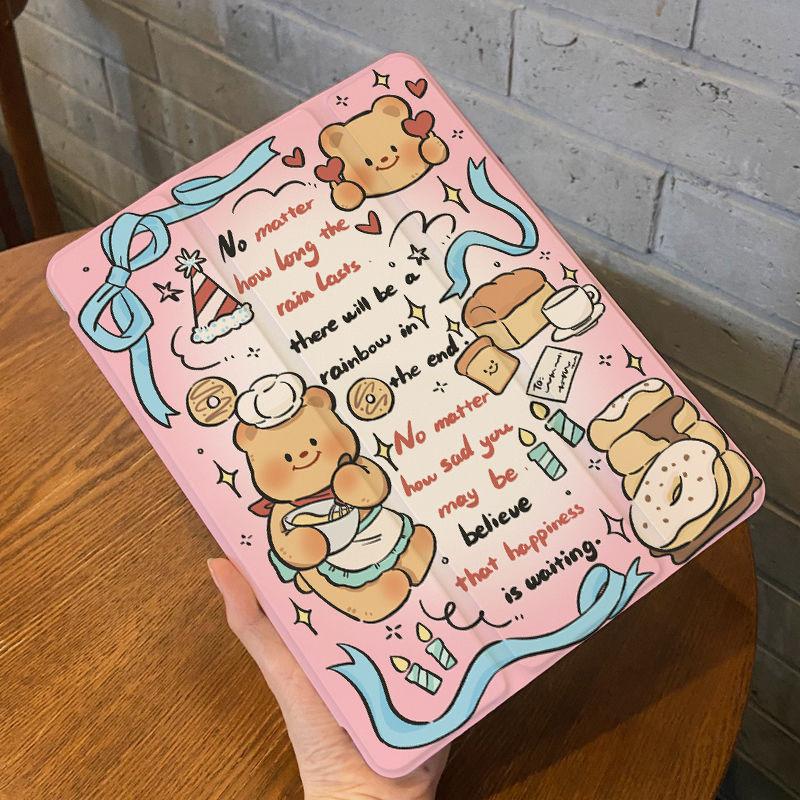 No matter
how long the
rain lasts
there will be a
rainbow in
the end.
No matter
how sad you
may be
believe
that happiness
is waiting.
To: